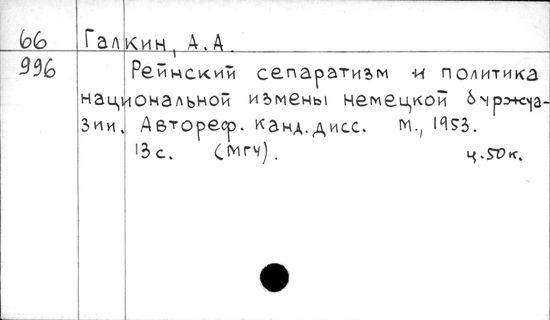 66 Галкин, А.А.
996 Рейнский сепаратизм и политика
национальной измены немецкой буржуа-
зии. Автореф. канд. дисс. М., 1953.
13 с. (МГУ). ц. 50 к.